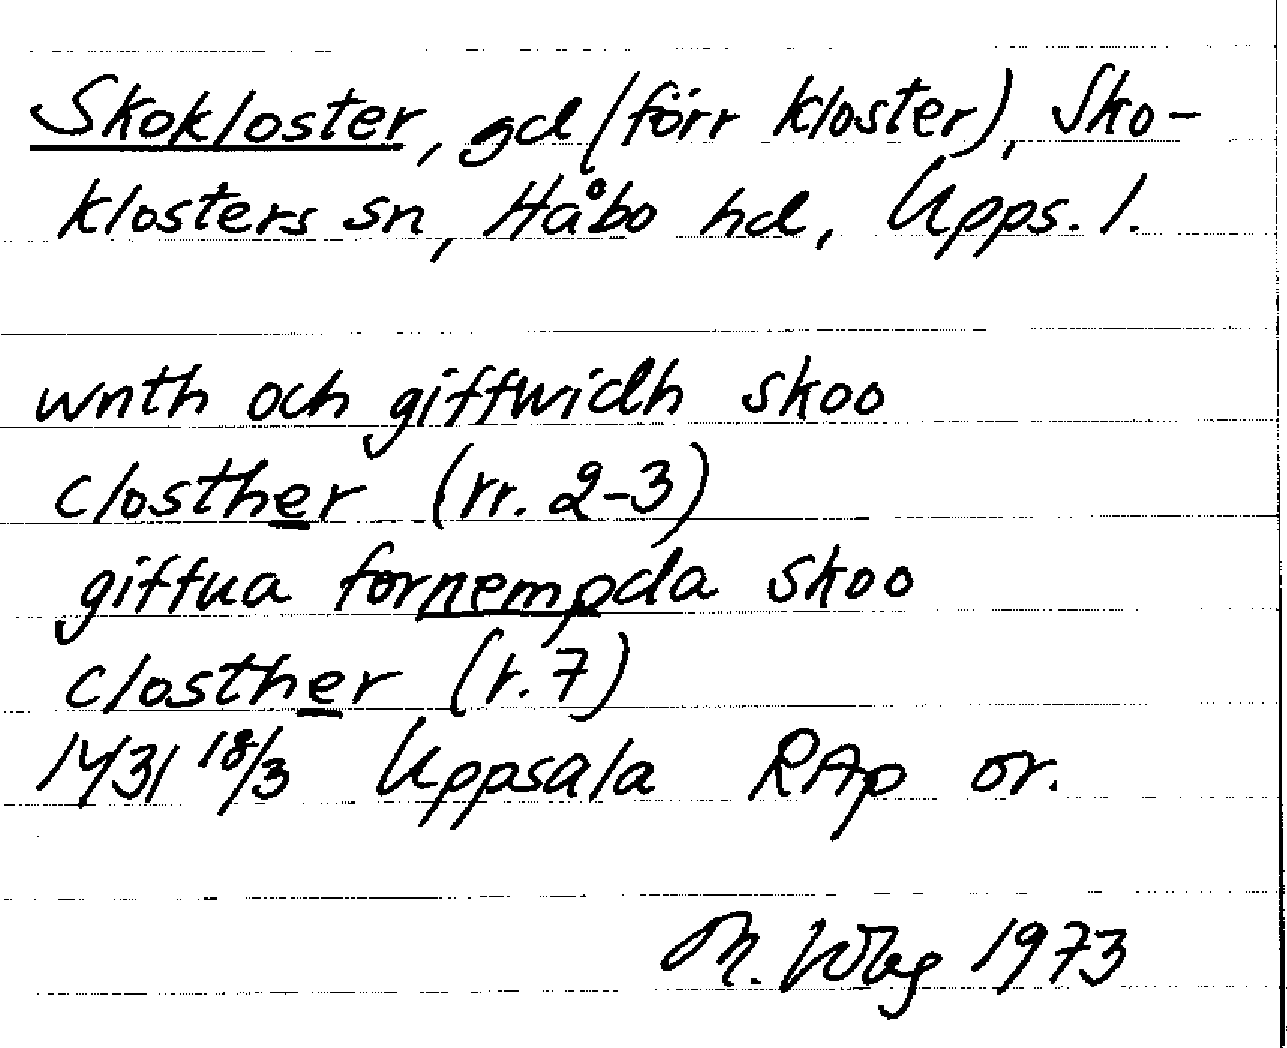 Skokloster, gd (förr kloster), Sko-
klosters sn, Håbo hd, Upps. l.
wnth och giffwidh skoo
closther (rr. 2-3)
giffua fornempda skoo
closther (r. 7)
1431 18/3 Uppsala RAp or.
M. 1973